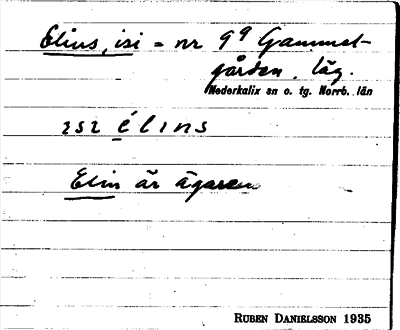 Elins, isi = nr 9⁹ Gammel-
gården, läg.
Nederkalix sn o. tg. Norrb. län
ısı é l ı n s
Elin är ägaren
RUBEN DANIELSSON 1935